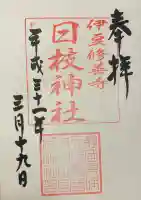 奉拝
伊豆修善寺
日枝神社
平成三十一年
三月十九日